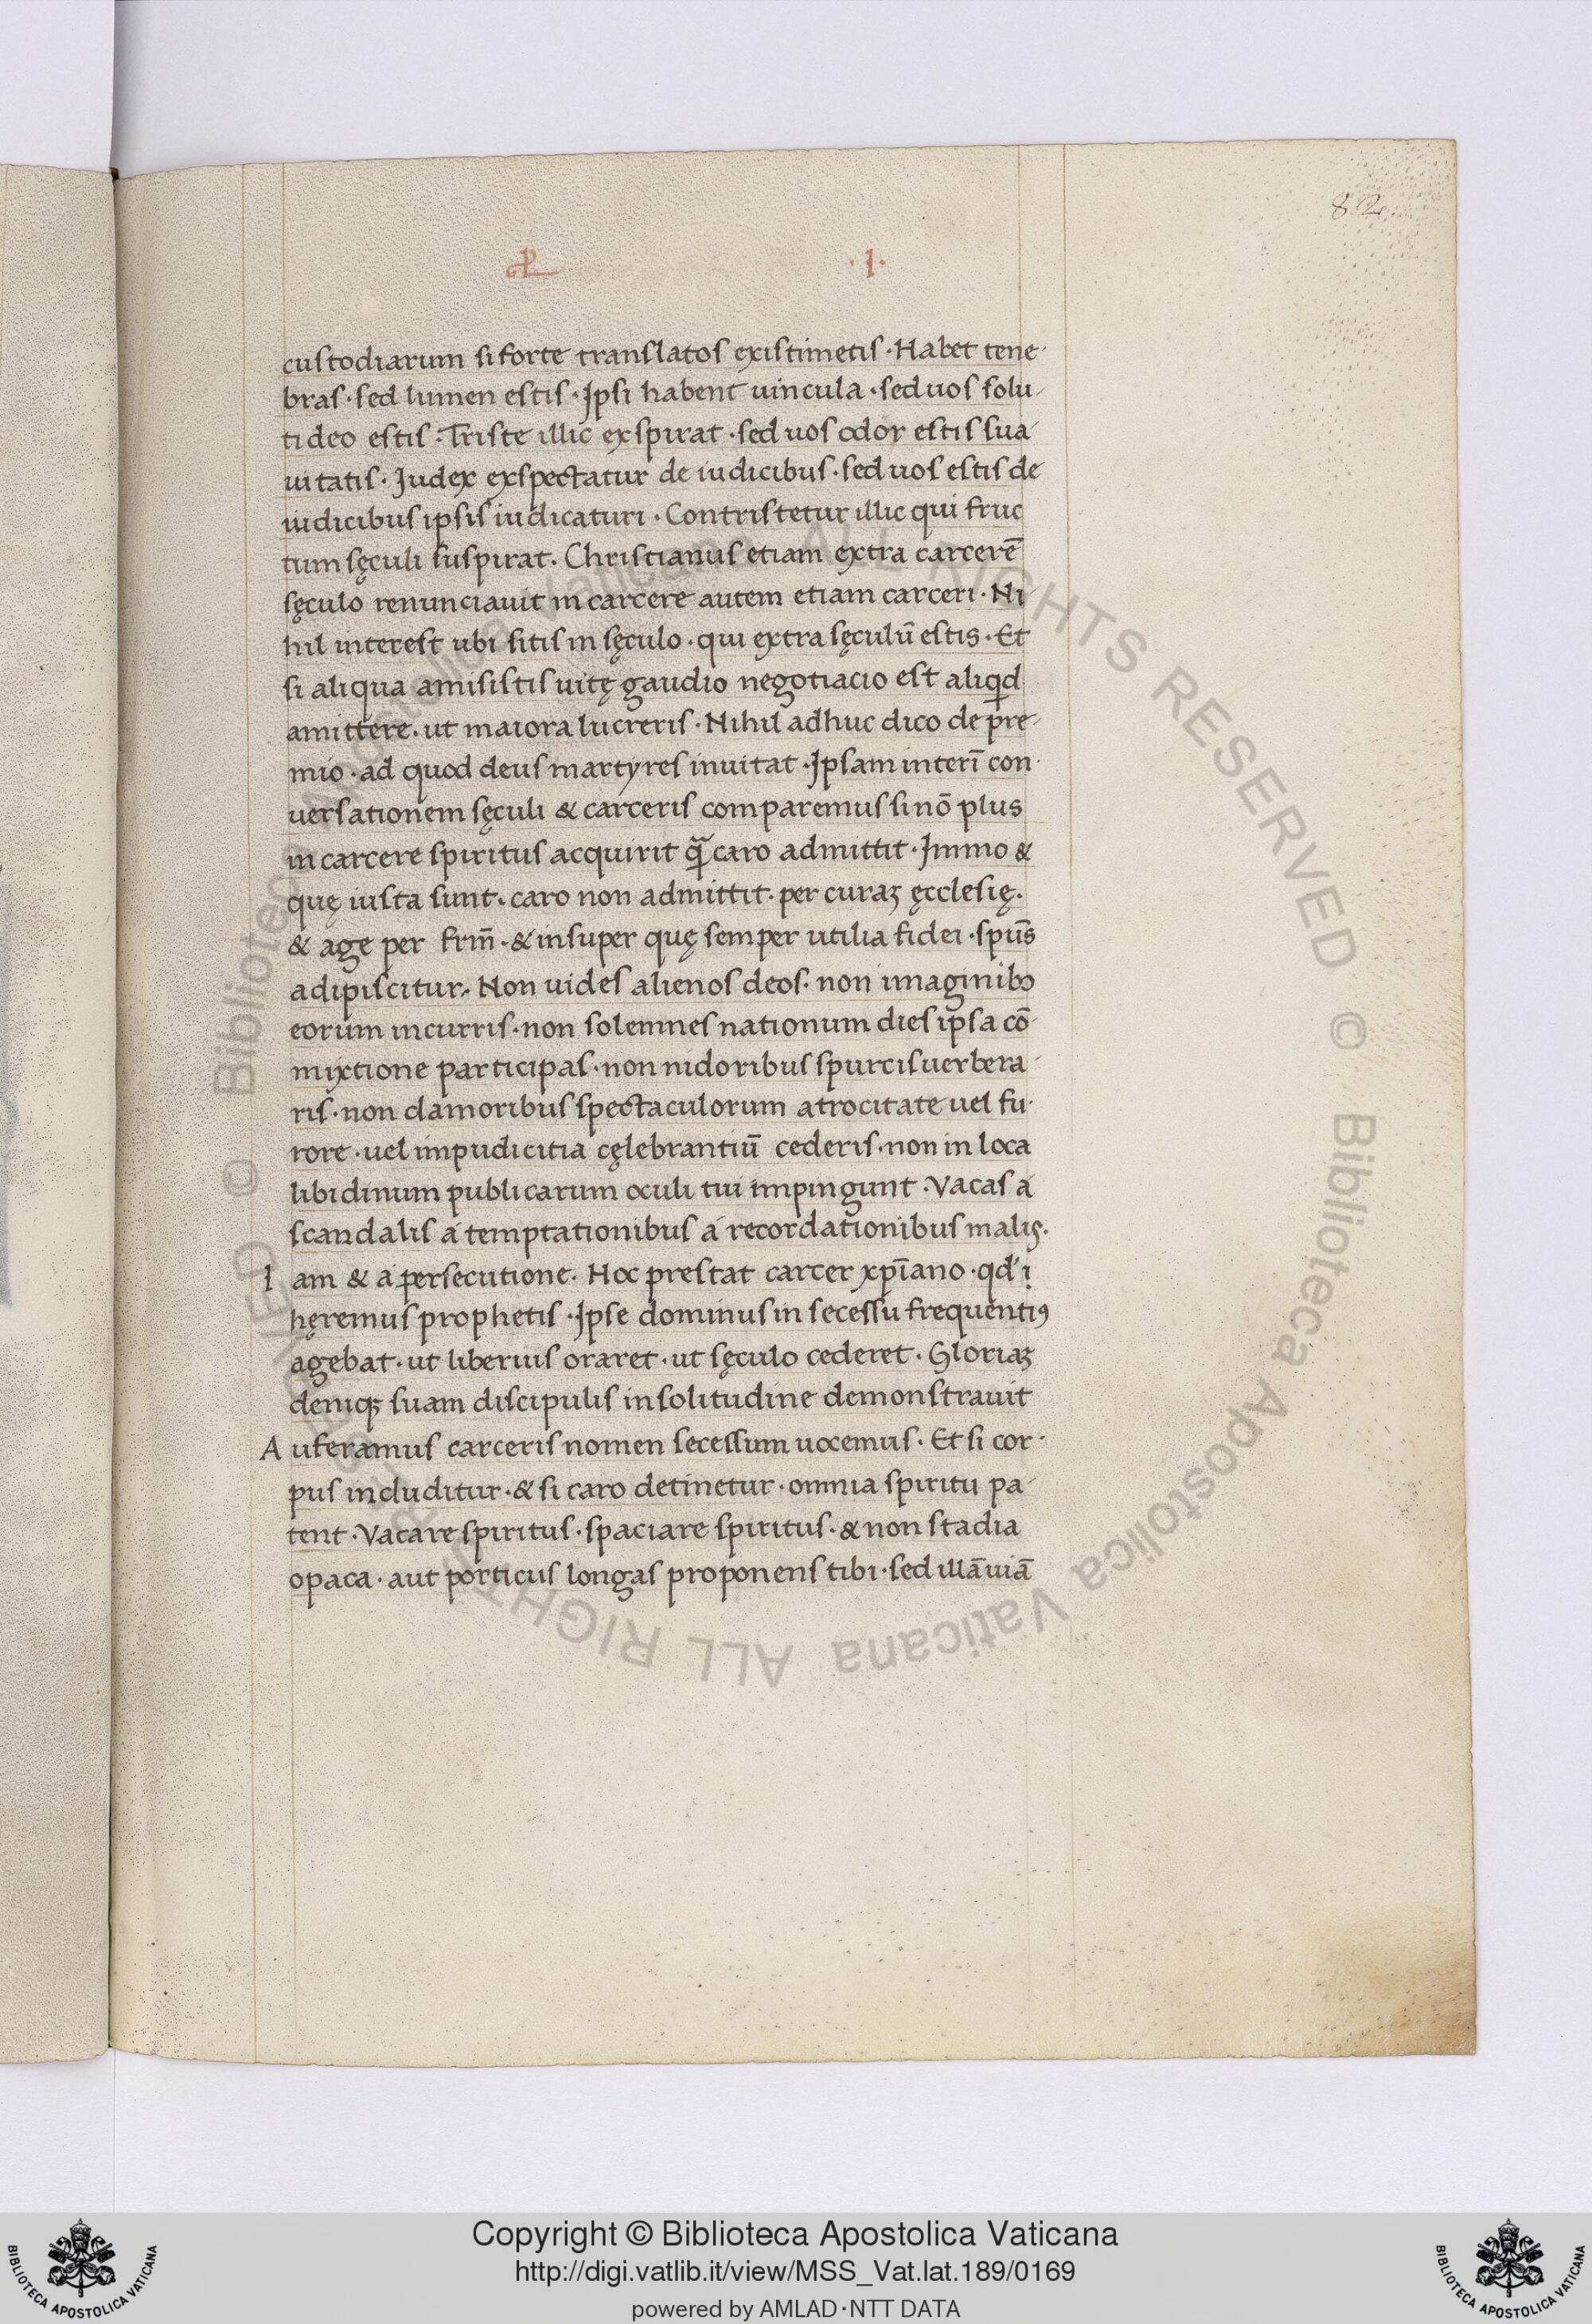 82
PL · I ·
custodiarum si forte translatos existimetis · Habet tene-
bras · sed lumen estis · Ipsi habent uincula · sed uos solu-
ti deo estis · Triste illic exspirat · sed uos odor estis sua-
uitatis · Iudex exspectatur de iudicibus · sed uos estis de
iudicibus ipsis iudicaturi · Contristetur illic qui fruc
tum sęculi suspirat · Christianus etiam extra carcerē
sęculo renunciauit in carcere autem etiam carceri · Ni-
hil interest ubi sitis in sęculo · qui extra sęculū estis · Et
si aliqua amisistis uitę gaudio negotiacio est aliqͥd
amittere · ut maiora lucreris · Nihil adhuc dico de pre-
mio · ad quod deus martyres inuitat · Ipsam interī con-
uersationem sęculi & carceris comparemus si nō plus
in carcere spiritus acquirit qᷓ caro admittit · Immo &
quę iusta sunt · caro non admittit · per curaꝫ ęcclesię ·
& age per frm̄ · & insuper quę semper utilia fidei · spūs
adipiscitur · Non uides alienos deos · non imaginibꝫ
eorum incurris · non solemnes nationum dies ipsa cō-
mixtione participas · non nidoribus spurcis uerbera-
ris · non clamoribus spectaculorum atrocitate uel fu-
rore · uel impudicitia cęlebrantiū cederis · non in loca
libidinum publicarum oculi tui impingunt · Vacas á
scandalis á temptationibus á recordationibus malis ·
I am & á persecutione · Hoc prestat carcer xp̄iano · qd' i
hęremus prophetis · Ipse dominus in secessu frequentiꝰ
agebat · ut liberius oraret · ut sęculo cederet · Gloriaꝫ
deniqꝫ suam discipulis in solitudine demonstrauit
A uferamus carceris nomen secessum uocemus · Et si cor-
pus includitur · & si caro detinetur · omnia spiritu pa-
tent · Vacare spiritus · spaciare spiritus · & non stadia
opaca · aut porticus longas proponens tibi · sed illā uiā
© Biblioteca Apostolica Vaticana ALL RIGHTS RESERVED © Biblioteca Apostolica Vaticana ALL RIGHTS RESERVED
Copyright © Biblioteca Apostolica Vaticana
http://digi.vatlib.it/view/MSS_Vat.lat.189/0169
powered by AMLAD·NTT DATA
BIBLIOTECA APOSTOLICA VATICANA
BIBLIOTECA APOSTOLICA VATICANA